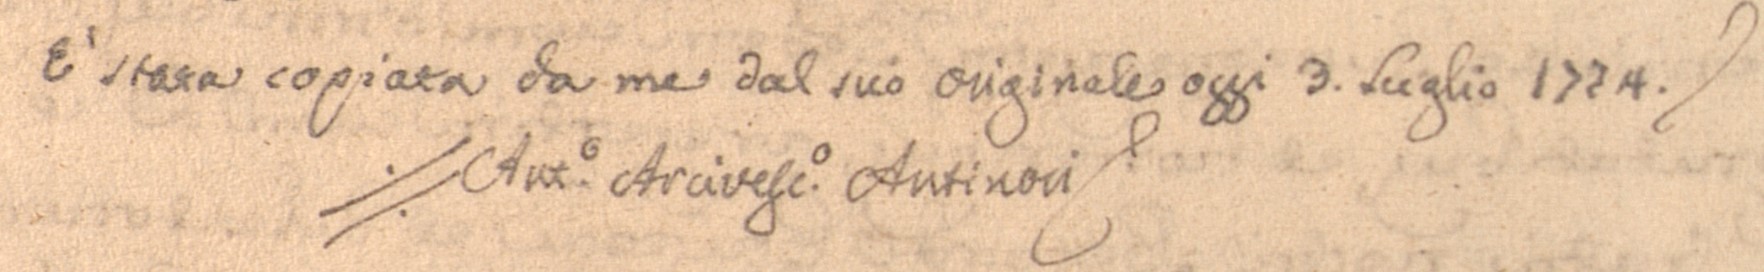 E' stata copiata da me dal suo originale oggi 3. Luglio 1774.
Ant.º Arcivesc.º Antinori